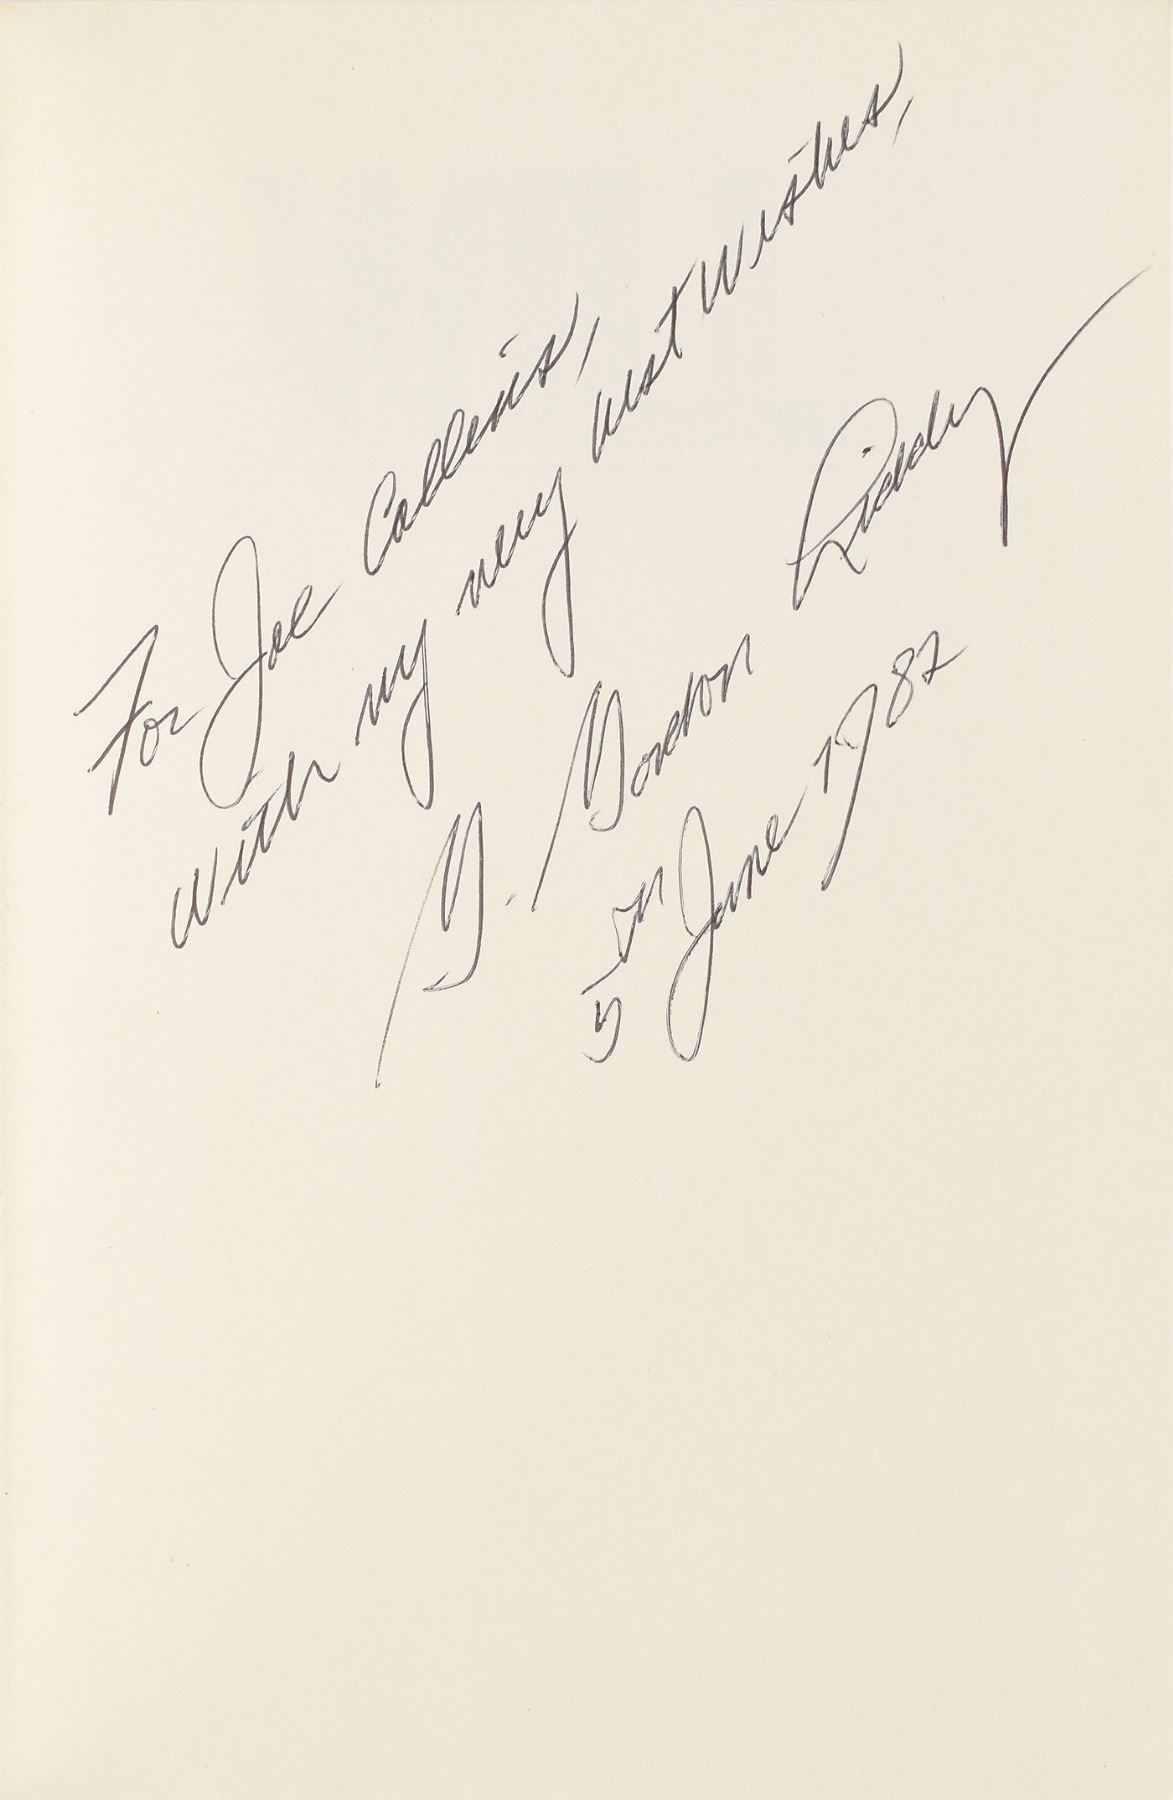 For Joe Callexis,
with my very best wishes,
G. Gordon Liddy
5 on June 1982